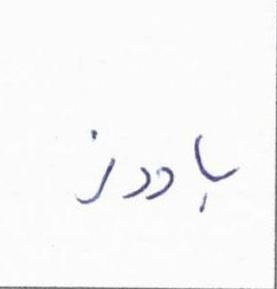 باددز